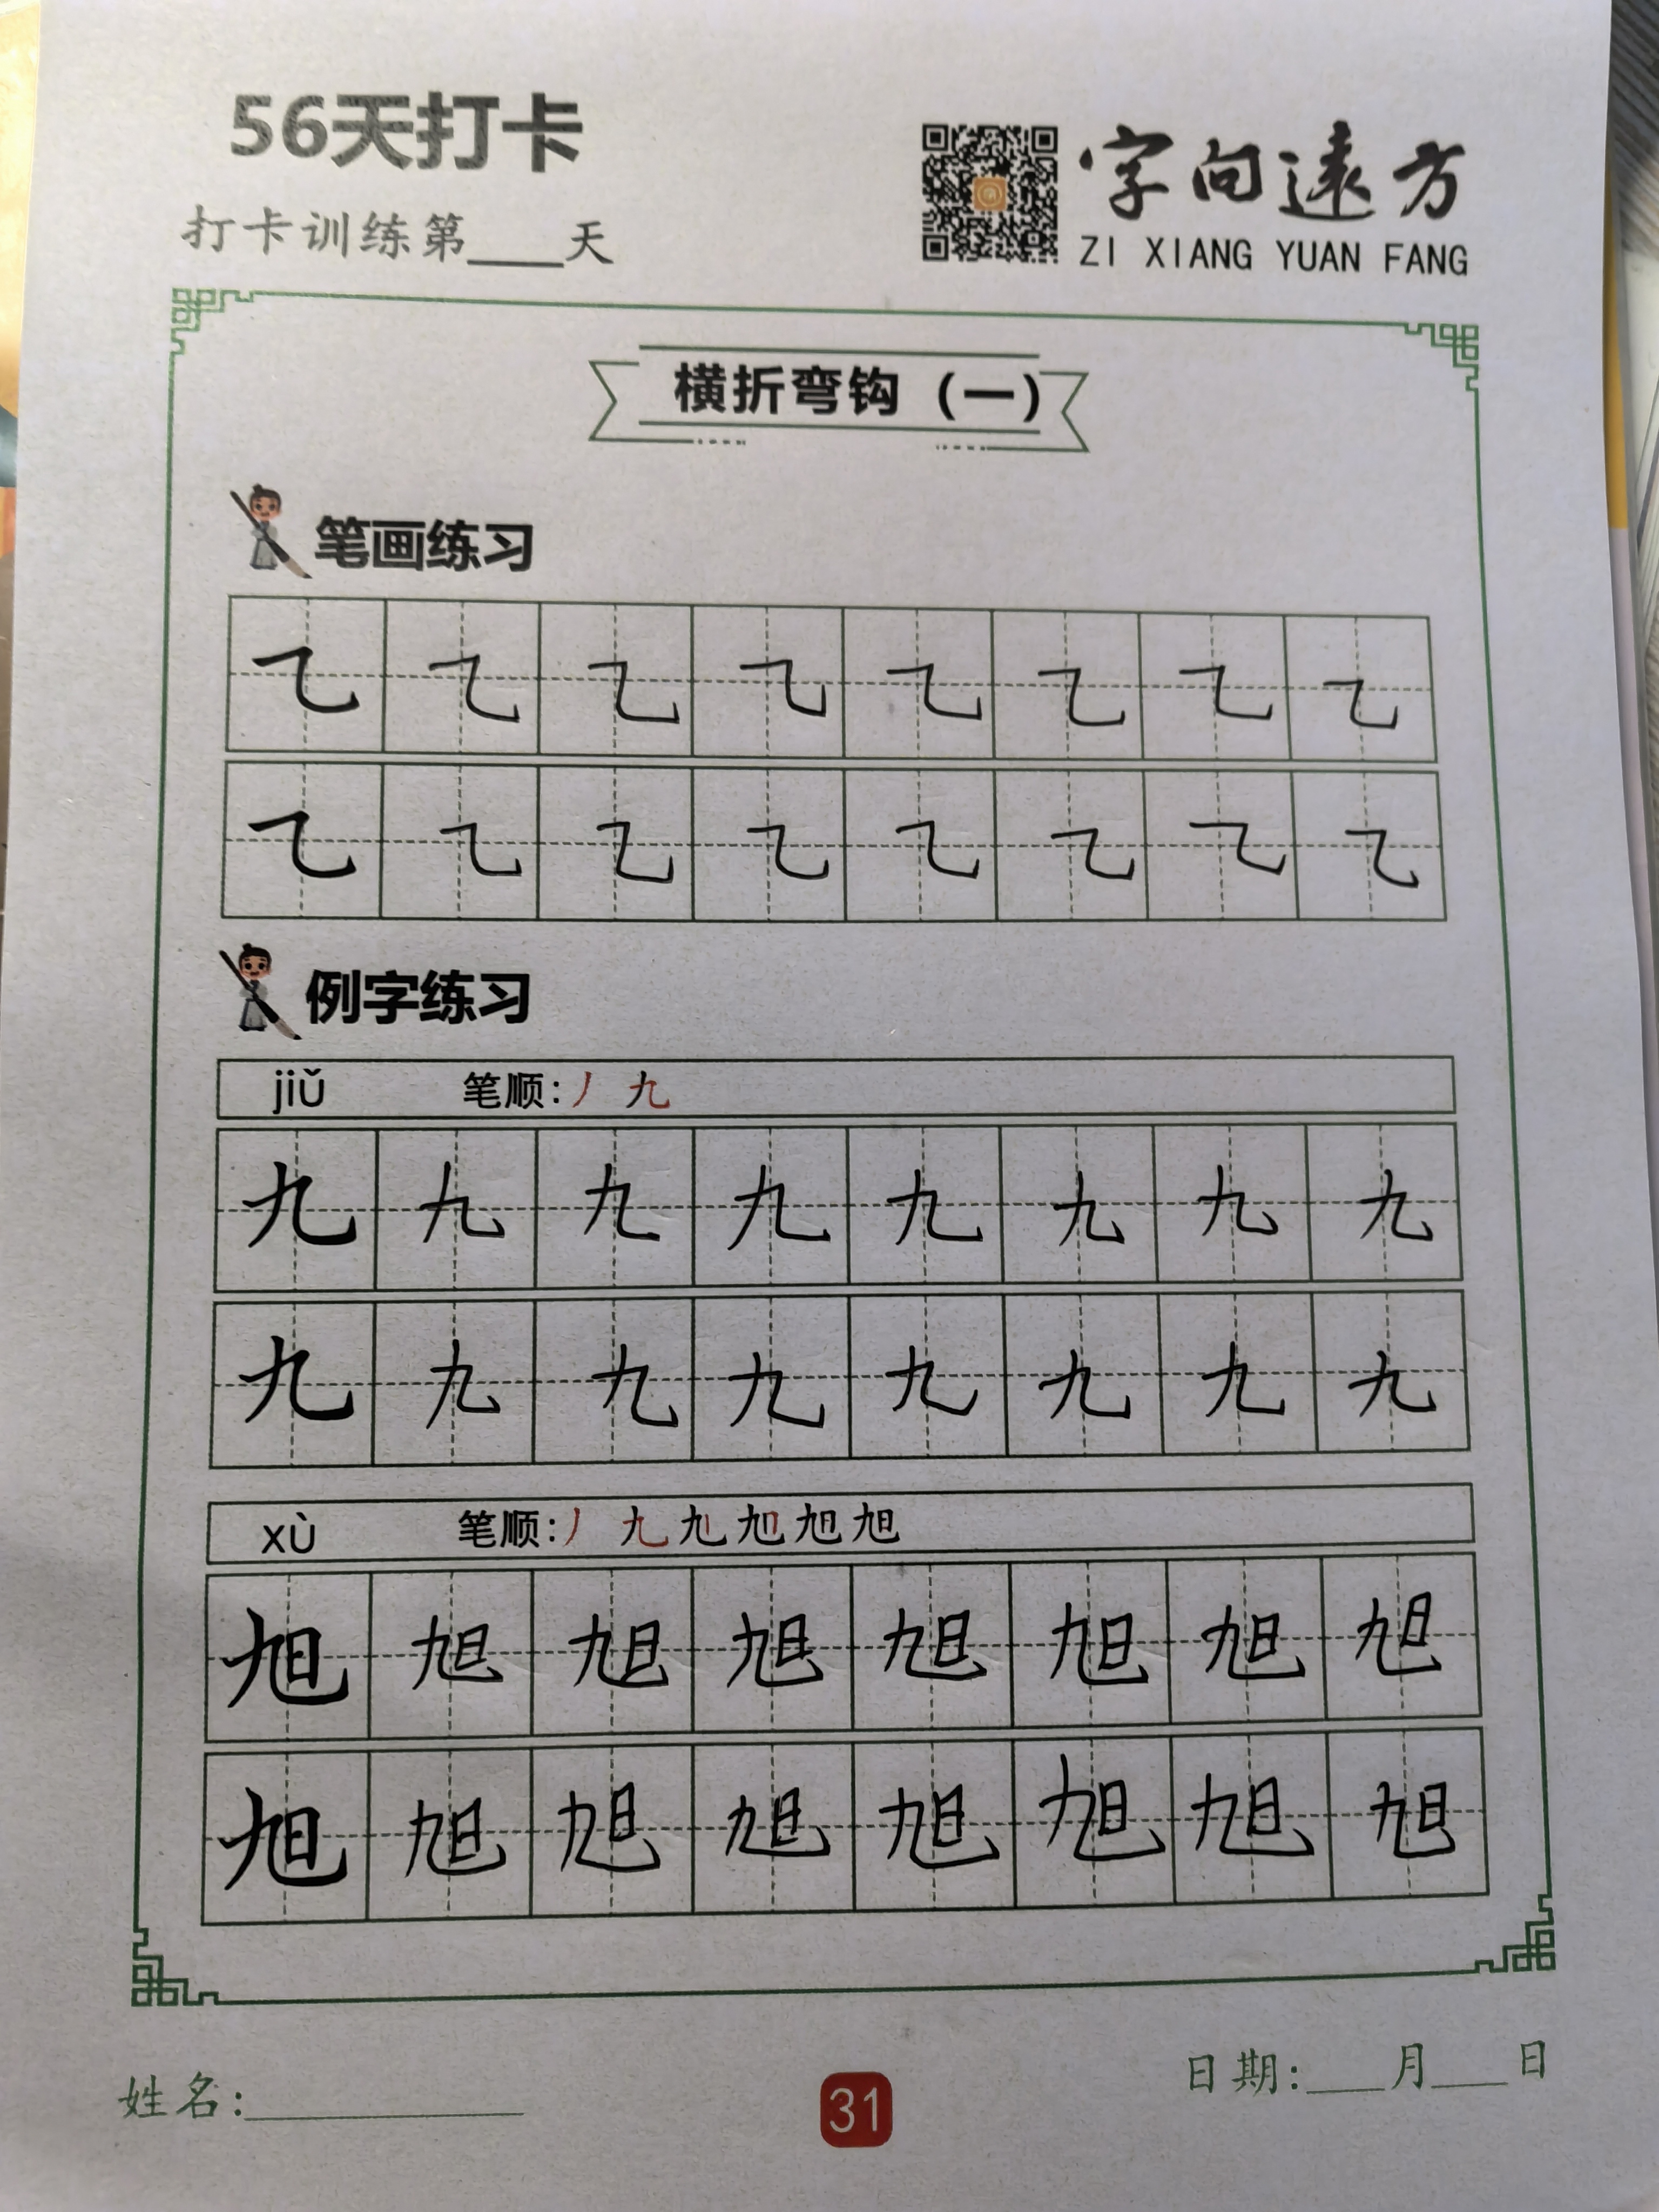 56天打卡
打卡训练第____天
字向遠方
ZI XIANG YUAN FANG
横折弯钩（一）
笔画练习
㇈ ㇈ ㇈ ㇈ ㇈ ㇈ ㇈ ㇈
㇈ ㇈ ㇈ ㇈ ㇈ ㇈ ㇈ ㇈
例字练习
jiǔ 笔顺:丿 九
九 九 九 九 九 九 九 九
九 九 九 九 九 九 九 九
xù 笔顺:丿 九 旭 旭 旭 旭
旭 旭 旭 旭 旭 旭 旭 旭
旭 旭 旭 旭 旭 旭 旭 旭
姓名:__________
31
日期:___月___日